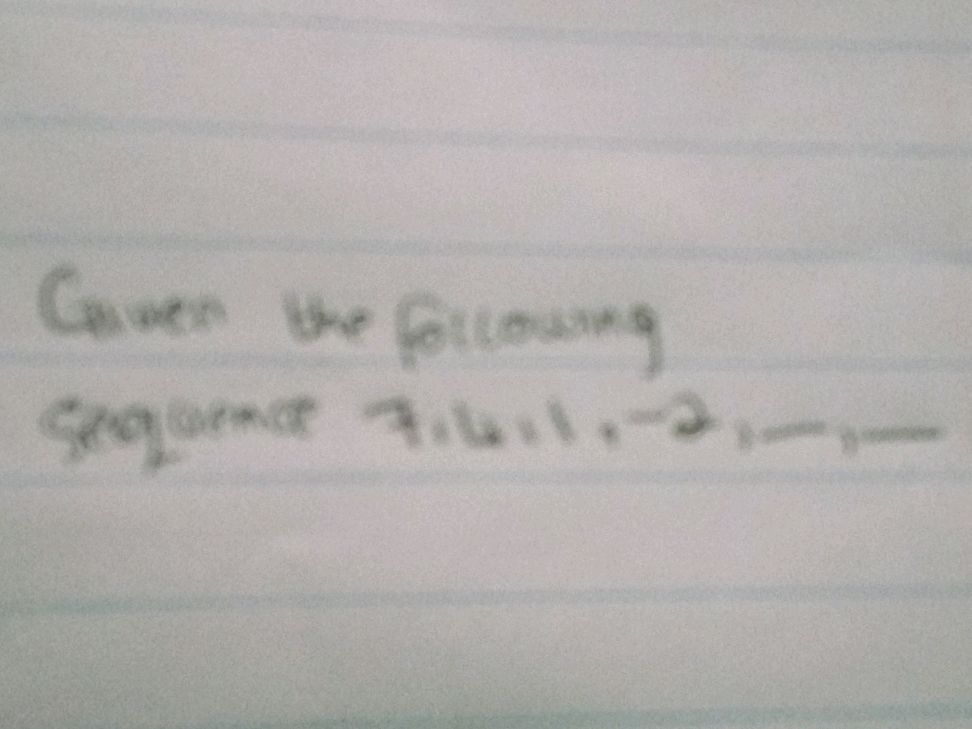 Given the following
sequence 7, 4, 1, -2, __, __